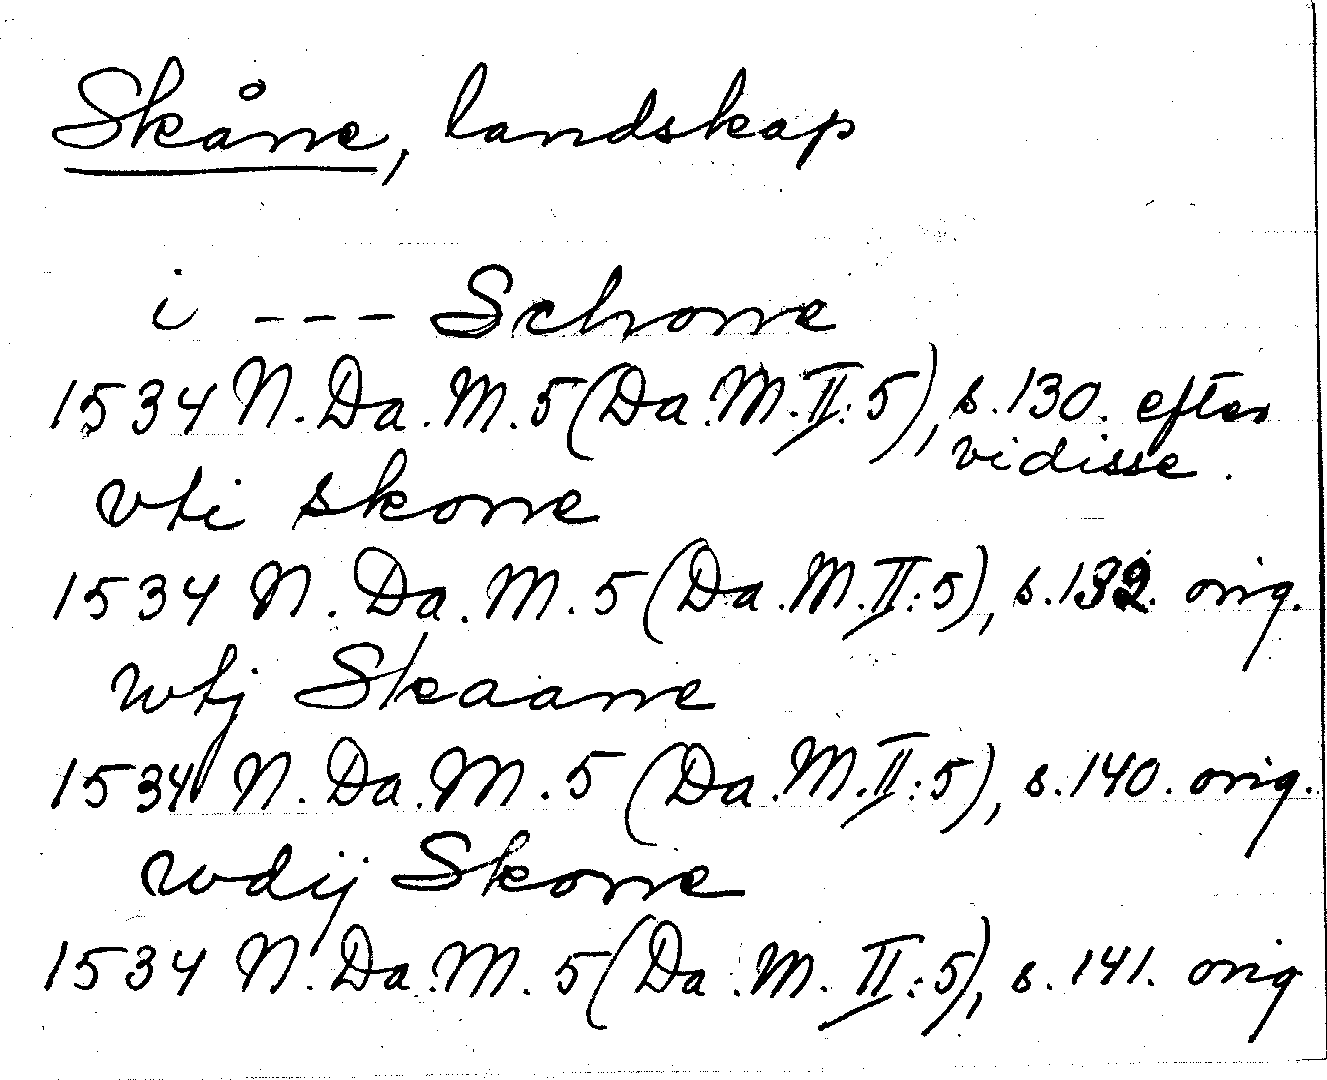 Skåne, landskap
i --- Schone
1534 N. Da. M. 5 (Da. M. II: 5), s. 130. efter
vidisse.
vti skone
1534 N. Da. M. 5 (Da. M. II: 5), s. 132. orig.
wtj Skaane
1534 N. Da. M. 5 (Da. M. II: 5), s. 140. orig.
wdij Skone
1534 N. Da. M. 5 (Da. M. II: 5), s. 141. orig